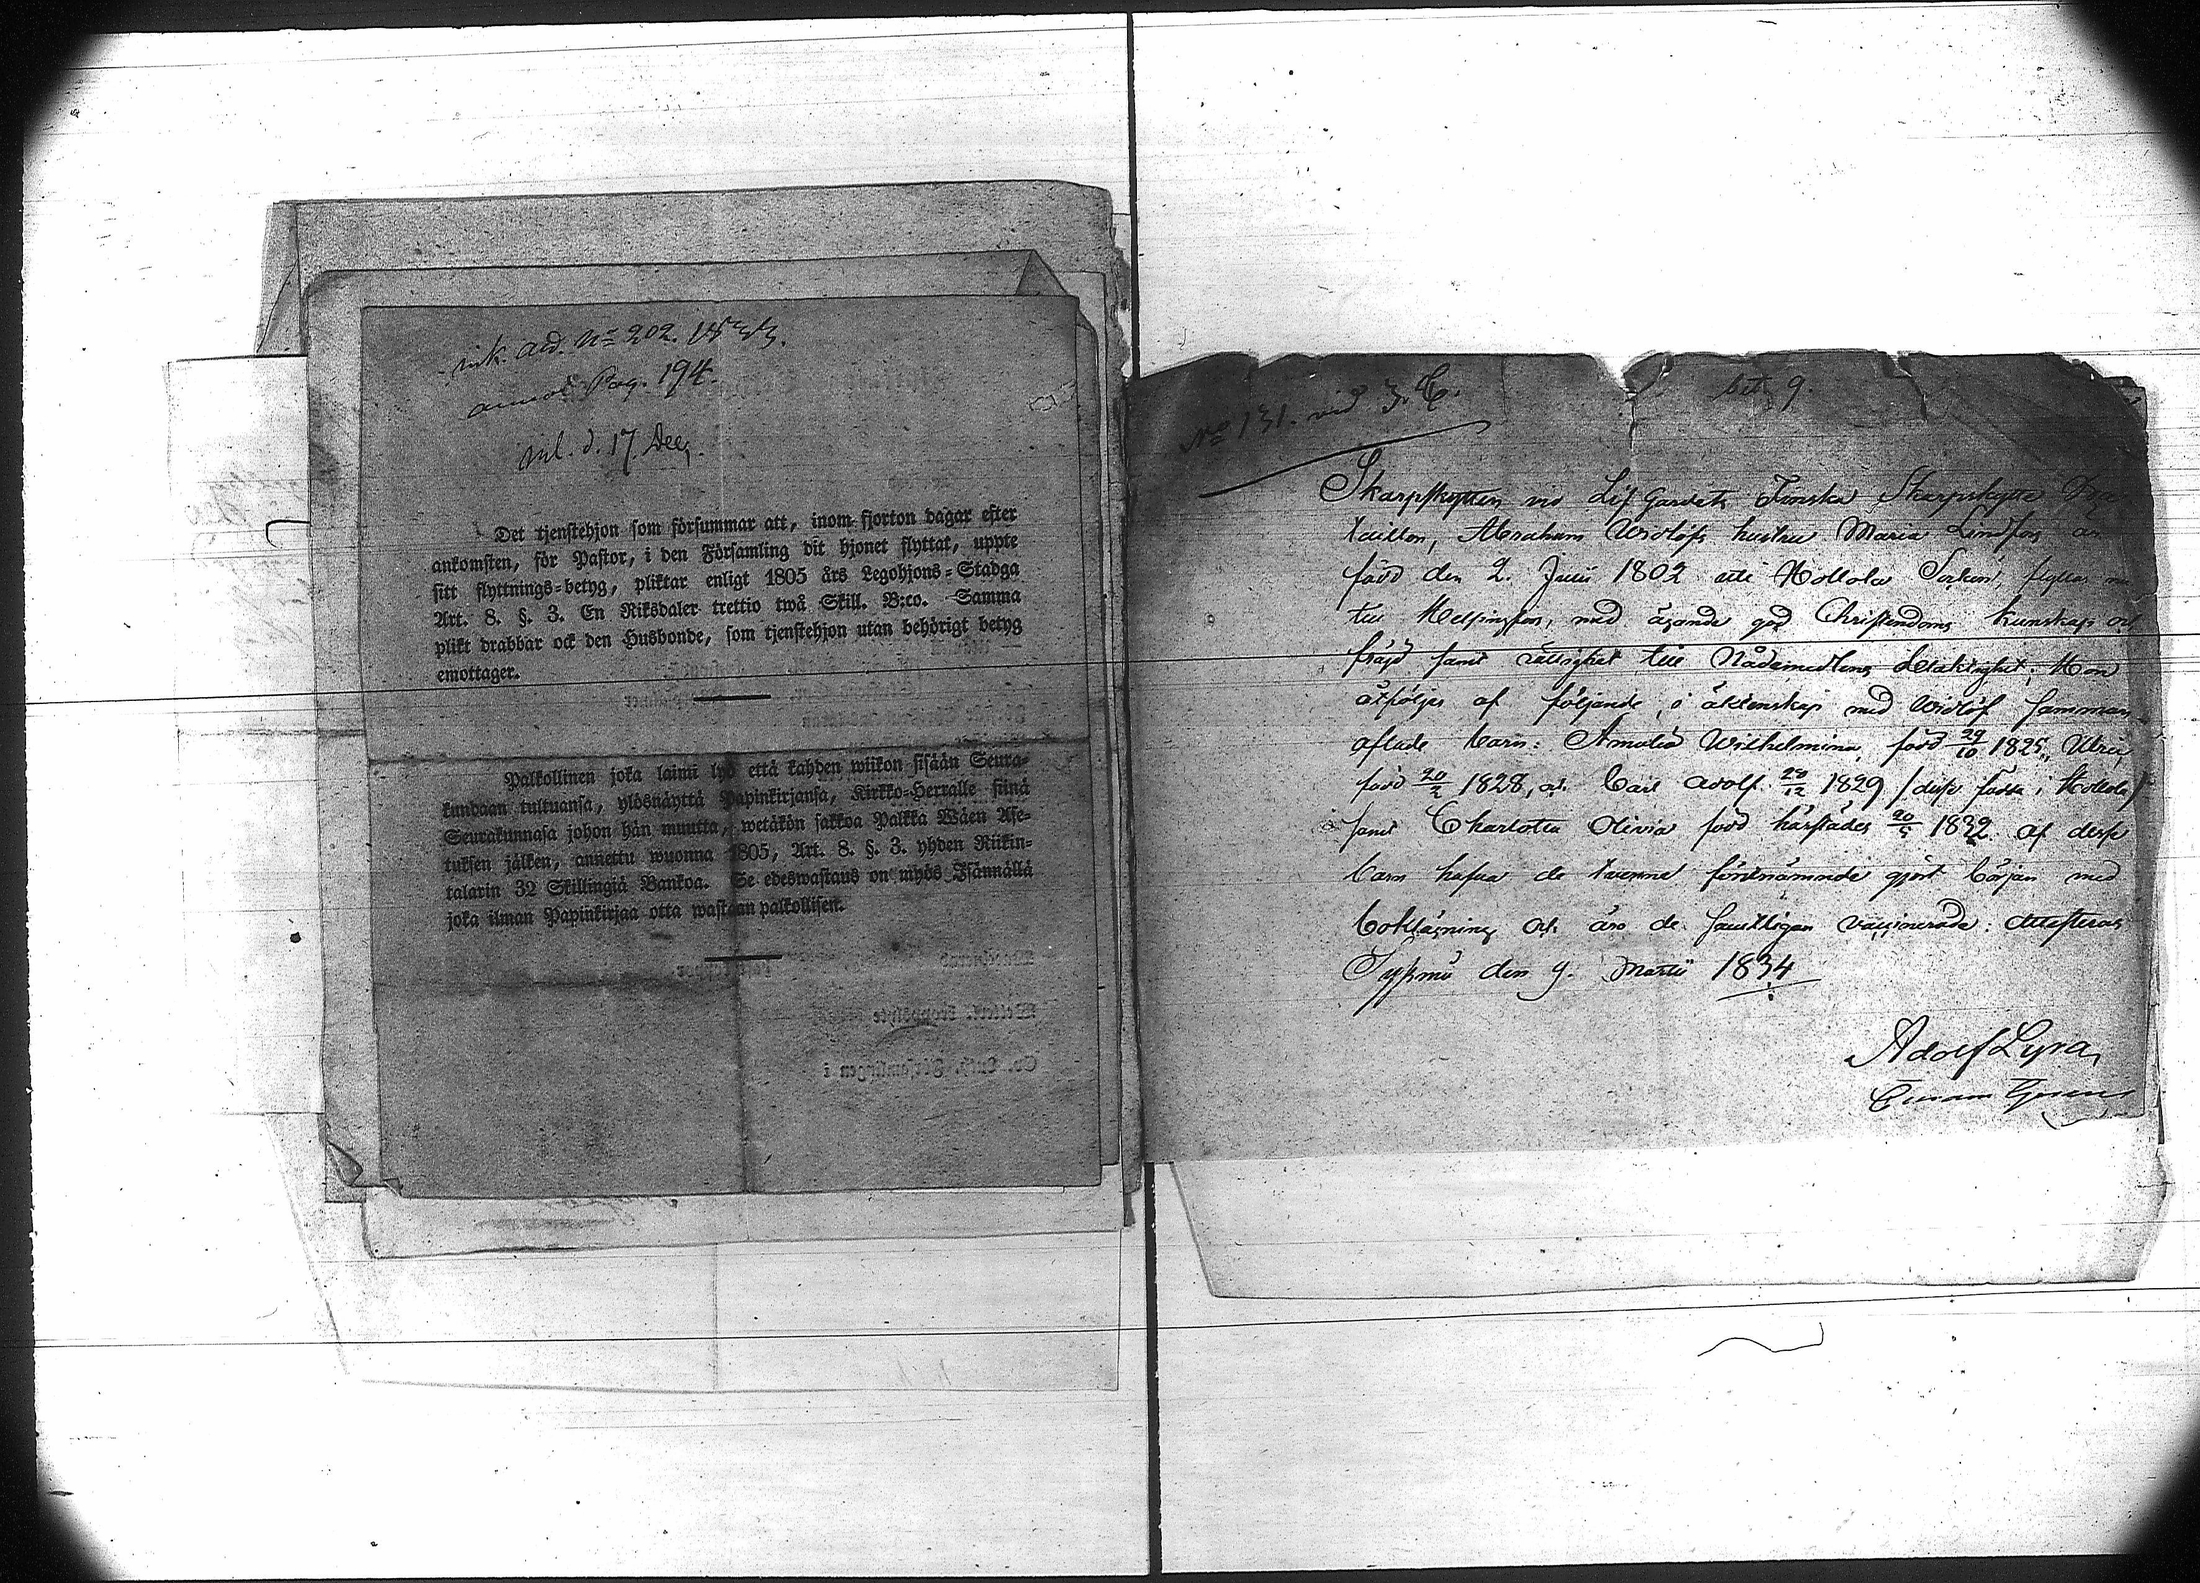 ink. Att. No 202. 1833.
annot. Pag. 194.
ml. d. 17 Dec.
Det tjenstehjon som försummar att, inom fjorton dagar efter
ankomsten, för Pastor, i den Församling dit hjonet flyttat, uppte
sitt flyttnings-betyg, pliktar enligt 1805 års Legohjons-Stadga
Art. 8. §. 3. En Riksdaler trettio twå Skill. B:co. Samma
plikt drabbar ock den Husbonde, som tjenstehjon utan behörigt betyg
emottager.
Palkollinen joka laimi lyö että kahden wiikon sisään Seura-
kundaan tultuansa, ylösnäyttä Papinkirjansa, Kirkko-Herralle siinä
Seurakunnasa johon hän muutta, wetäkön sakkoa Palkka Wäen Ase-
tuksen jälken, annettu wuonna 1805, Art. 8. §. 3. yhden Riikin-
talarin 32 Skillingiä Bankoa. Se edeswastaus on myös Isännällä
joka ilman Papinkirjaa otta wastaan palkollisen.
No 131. vid 3. C. bet 9.
Skarpskytten vid Lif Gardets Finska Skarpskytte
taillon, Abraham Widlöfs hustru Maria Lindfors
född den 2. Junii 1802 uti Hollola Socken, flyttar
till Helsingfors, med ägande god Christendoms kunskap och
fräjd samt rättighet till Nådemedlens delaktighet; Hon
åtföljes af följande, i äktenskap med Widlöf samman
aflade barn: Amalia Wilhelmina, född 29/10 1825, Ulrica,
född 20/2 1828, och Carl Adolf 28/12 1829 /desse födde i Hollola/
samt Charlotta Olivia född härstädes 20/5 1832. af desse
barn hafva de tvenne förstnämnde gjort början med
bokläsning och äro de samtligen vaccinerade: attesteras
Sysmä den 9. Martii 1834
Adolf Lyra,